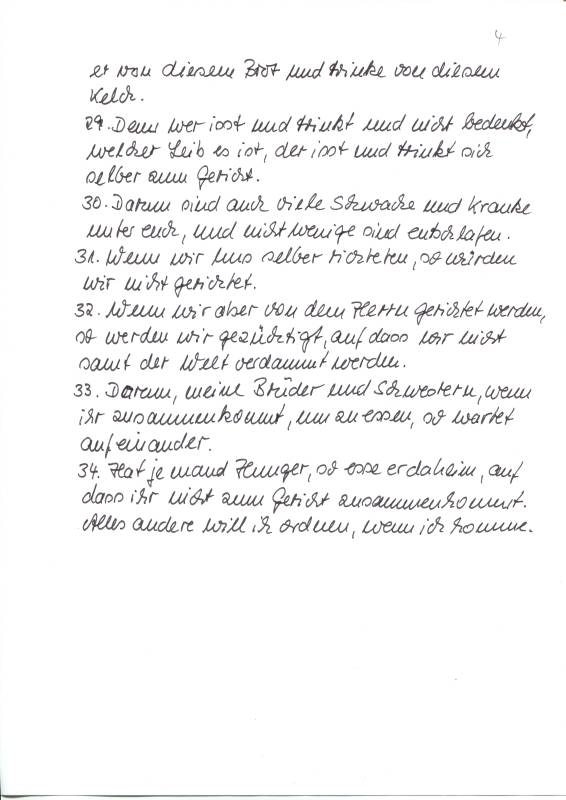 4
er von diesem Brot und trinke von diesem
Kelch.
29. Denn wer isst und trinkt und nicht bedenkt,
welcher Leib es ist, der isst und trinkt sich
selber zum Gericht.
30. Darum sind auch viele Schwache und Kranke
unter euch, und nicht wenige sind entschlafen.
31. Wenn wir uns selber richteten, so würden
wir nicht gerichtet.
32. Wenn wir aber von dem Herrn gerichtet werden,
so werden wir gezüchtigt, auf dass wir nicht
samt der Welt verdammt werden.
33. Darum, meine Brüder und Schwestern, wenn
ihr zusammenkommt, um zu essen, so wartet
aufeinander.
34. Hat jemand Hunger, so esse er daheim, auf
dass ihr nicht zum Gericht zusammenkommt.
Alles andere will ich ordnen, wenn ich komme.